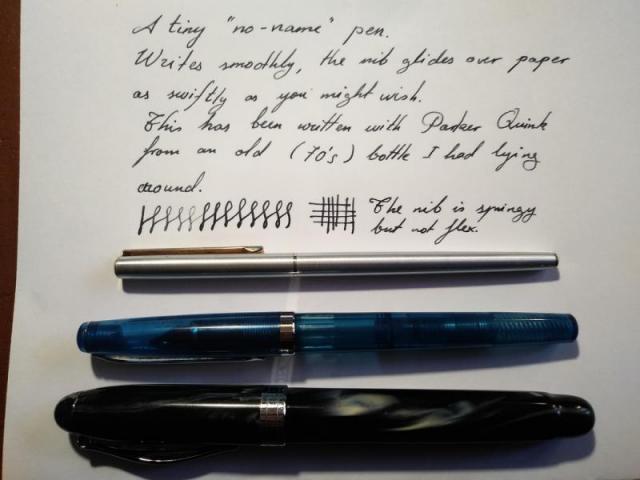 A tiny "no-name" pen.
Writes smoothly, the nib glides over paper
as swiftly as you might wish.
This has been written with Parker Quink
from an old (70's) bottle I had lying
around.
The nib is springy
but not flex.